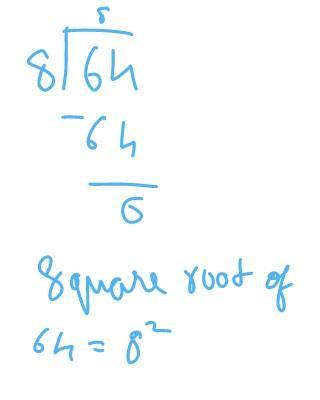 8
8 64
- 64
0
Square root of
64 = 8²